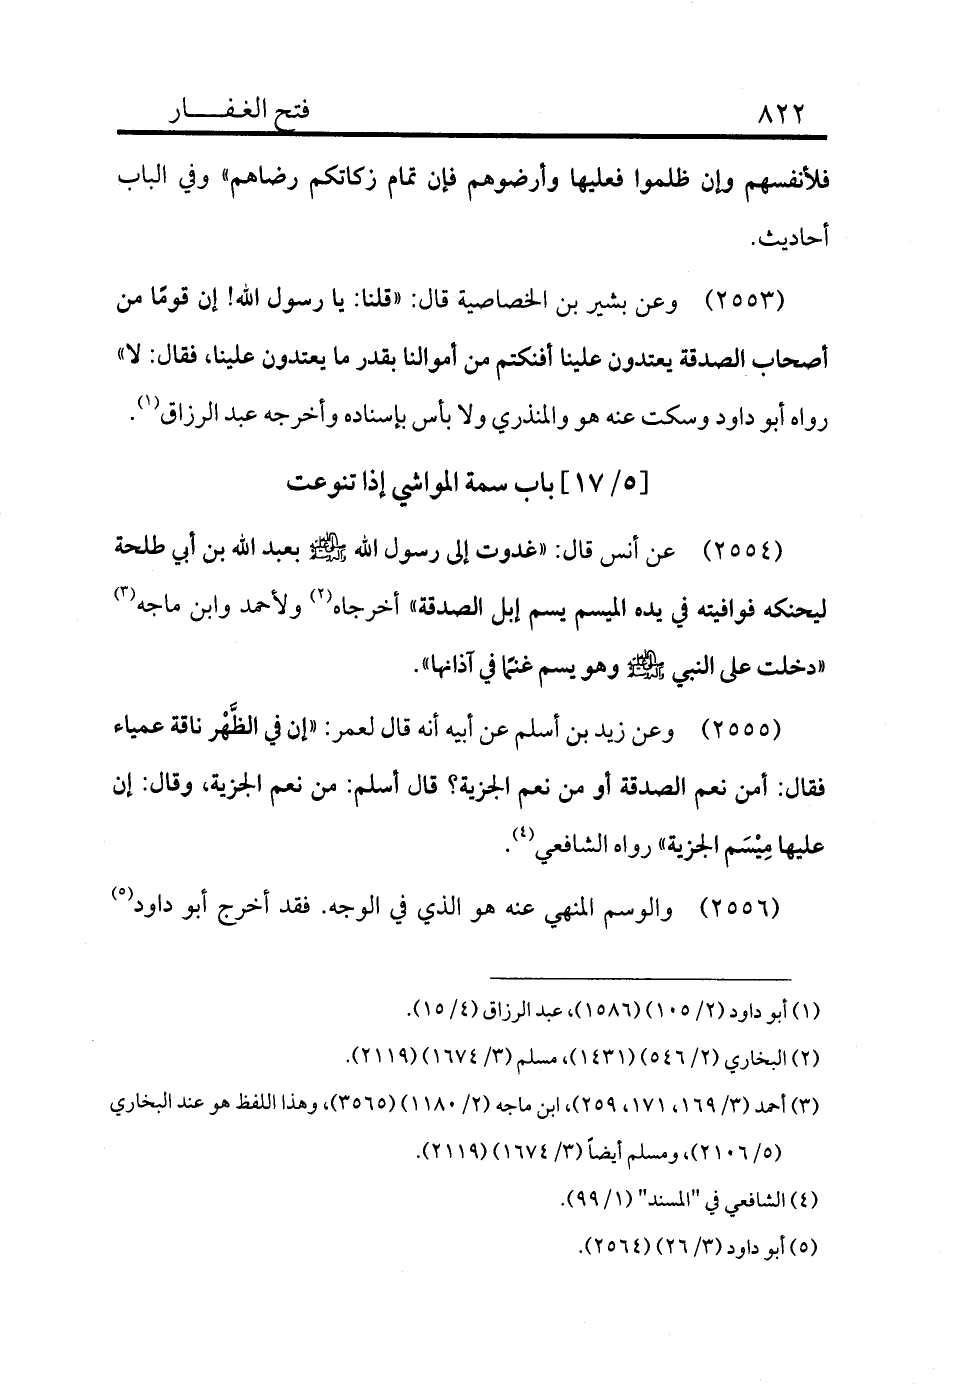 ٨٢٢ فتح الغفـــــار
فلأنفسهم وإن ظلموا فعليها وأرضوهم فإن تمام زكاتكم رضاهم» وفي الباب
أحاديث.
(٢٥٥٣) وعن بشير بن الخصاصية قال: «قلنا: يا رسول الله! إن قومًا من
أصحاب الصدقة يعتدون علينا أفنكتم من أموالنا بقدر ما يعتدون علينا، فقال: لا»
رواه أبو داود وسكت عنه هو والمنذري ولا بأس بإسناده وأخرجه عبد الرزاق(١).
[١٧/٥] باب سمة المواشي إذا تنوعت
(٢٥٥٤) عن أنس قال: «غدوت إلى رسول الله ﷺ بعبد الله بن أبي طلحة
ليحنكه فوافيته في يده الميسم يسم إبل الصدقة» أخرجاه(٢) ولأحمد وابن ماجه(٣)
«دخلت على النبي ﷺ وهو يسم غنمًا في آذانها».
(٢٥٥٥) وعن زيد بن أسلم عن أبيه أنه قال لعمر: «إن في الظَّهْر ناقة عمياء
فقال: أمن نعم الصدقة أو من نعم الجزية؟ قال أسلم: من نعم الجزية، وقال: إن
عليها مِيْسَم الجزية» رواه الشافعي(٤).
(٢٥٥٦) والوسم المنهي عنه هو الذي في الوجه. فقد أخرج أبو داود(٥)
(١) أبو داود (٢/ ١٠٥) (١٥٨٦)، عبد الرزاق (٤/ ١٥).
(٢) البخاري (٢/ ٥٤٦) (١٤٣١)، مسلم (٣/ ١٦٧٤) (٢١١٩).
(٣) أحمد (٣/ ١٦٩، ١٧١، ٢٥٩)، ابن ماجه (٢/ ١١٨٠) (٣٥٦٥)، وهذا اللفظ هو عند البخاري
(٥/ ٢١٠٦)، ومسلم أيضاً (٣/ ١٦٧٤) (٢١١٩).
(٤) الشافعي في "المسند" (١/ ٩٩).
(٥) أبو داود (٣/ ٢٦) (٢٥٦٤).